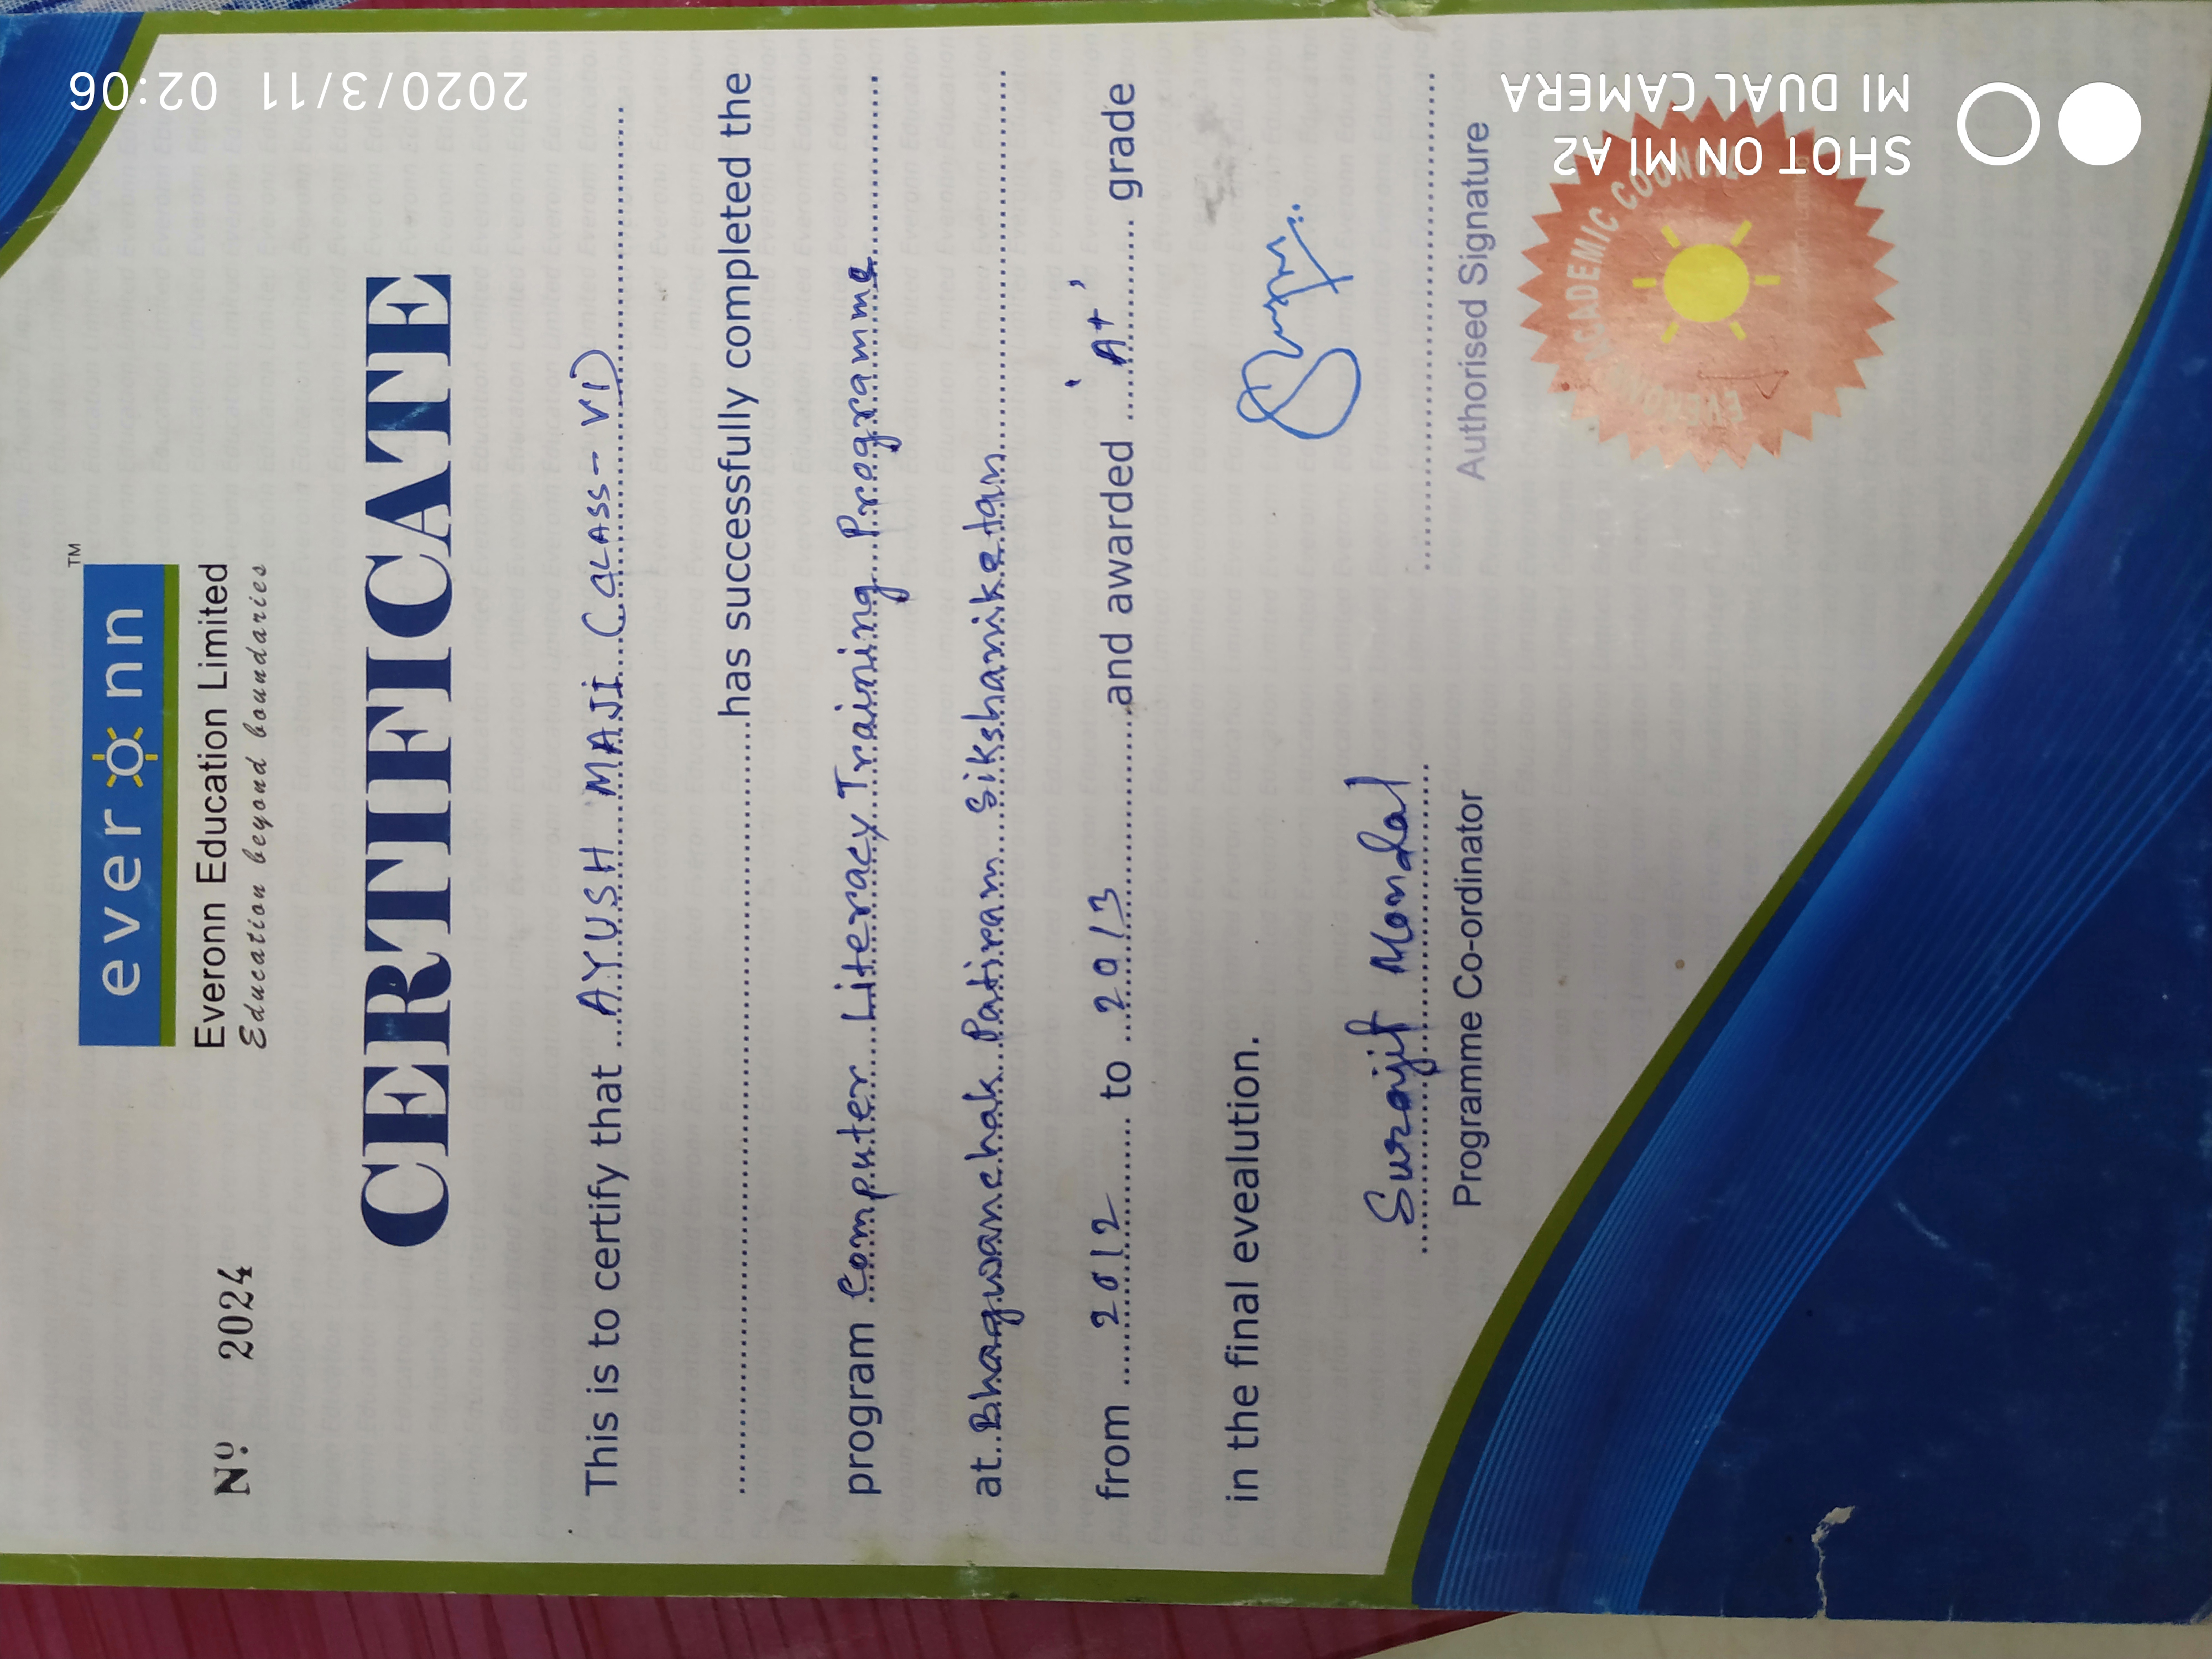 everonn TM
Everonn Education Limited
Education beyond boundaries
Nº 2024
CERTIFICATE
This is to certify that AYUSH MAJI (CLASS-VI)
has successfully completed the
program Computer Literacy Training Programme
at Bhagwanchak Patiram Sikshaniketan
from 2012 to 2013 and awarded 'A+' grade
in the final evealution.
Surajit Mondal
Programme Co-ordinator
Authorised Signature
EVERONN ACADEMIC
SHOT ON MI A2
MI DUAL CAMERA
2020/3/11 02:06